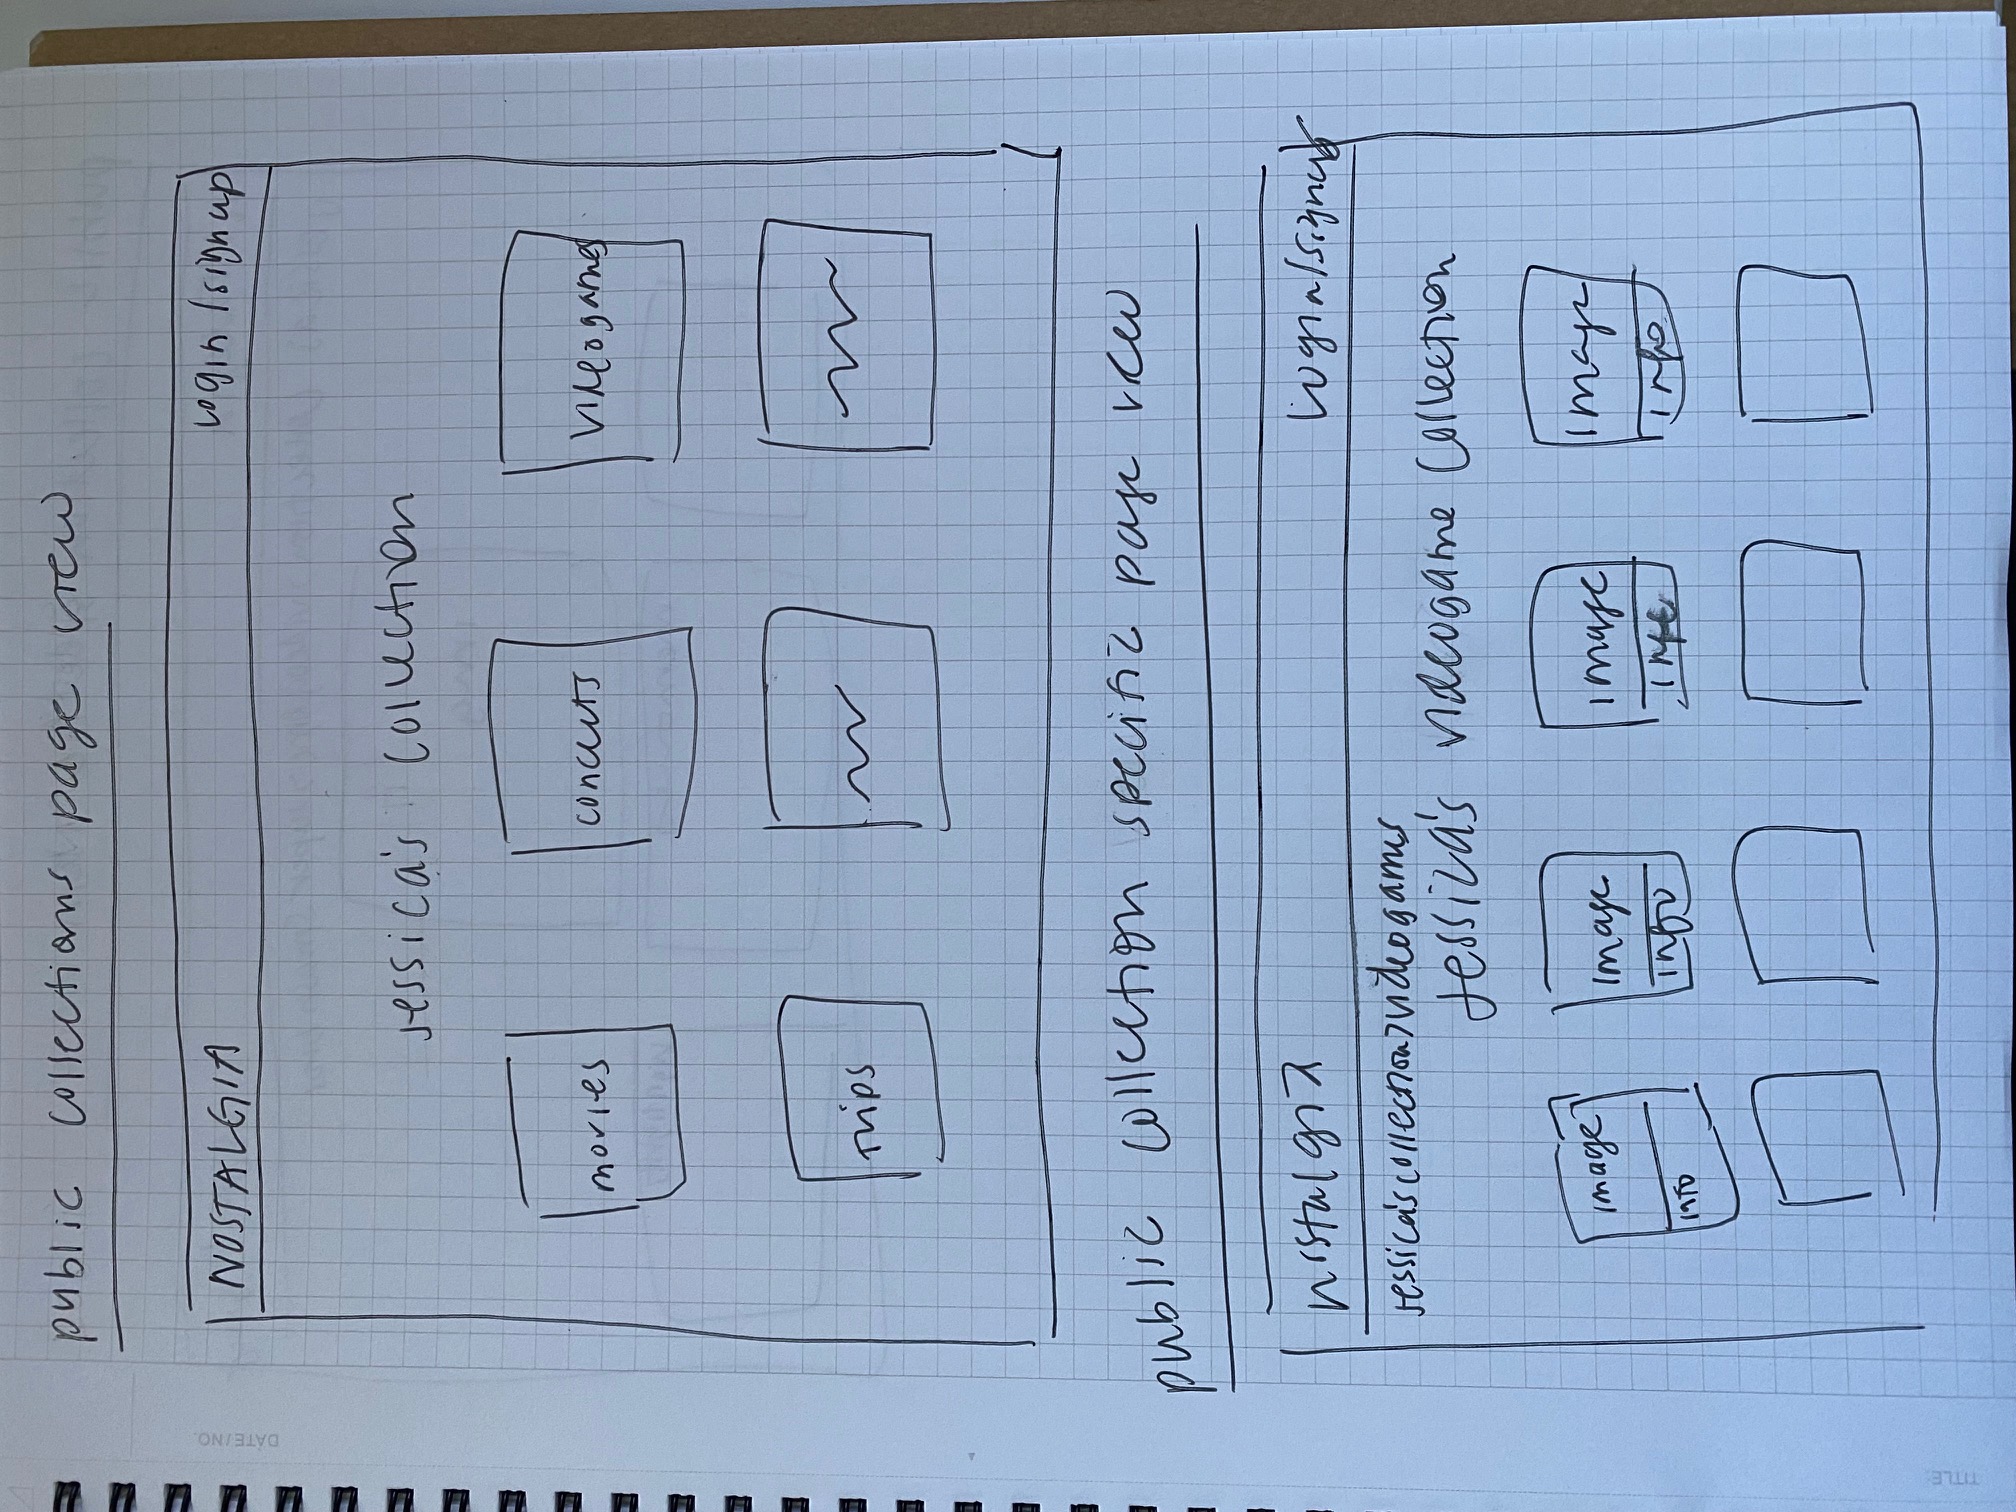 public collections page view
NOSTALGIA
Login / signup
Jessica's collection
movies
concerts
videogames
trips
public collection specific page view
nostalgia
Login/signup
Jessica's collection > videogames
Jessica's videogame collection
image
image
image
image
info
info
info
info
DATE/NO.
TITLE